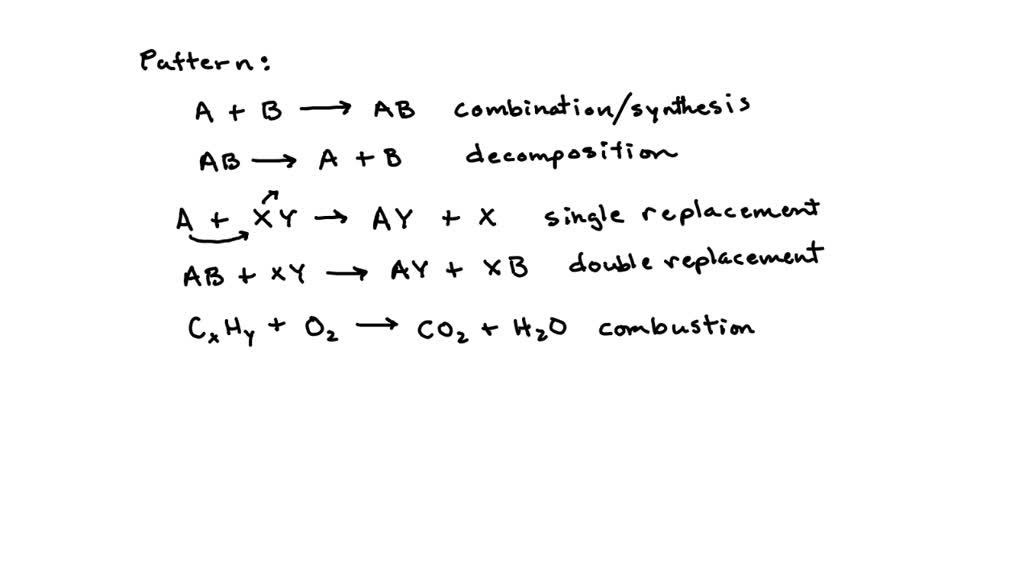 Pattern:
A + B → AB combination/synthesis
AB → A + B decomposition
A + XY → AY + X single replacement
AB + XY → AY + XB double replacement
CₓHᵧ + O₂ → CO₂ + H₂O combustion